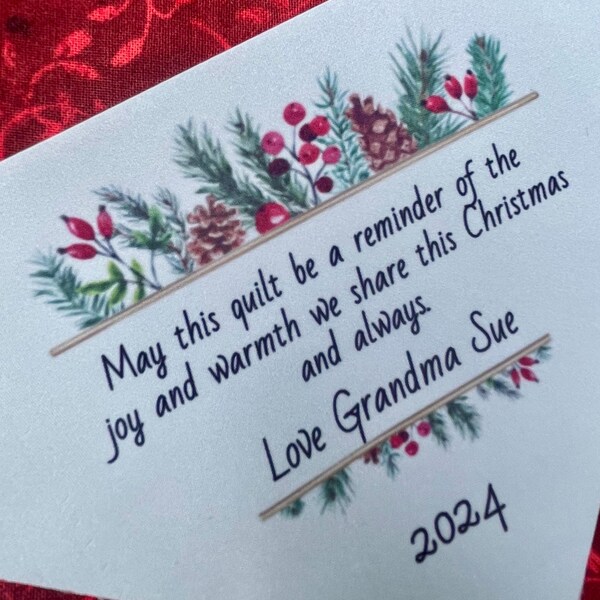 May this quilt be a reminder of the
joy and warmth we share this Christmas
and always.
Love Grandma Sue
2024